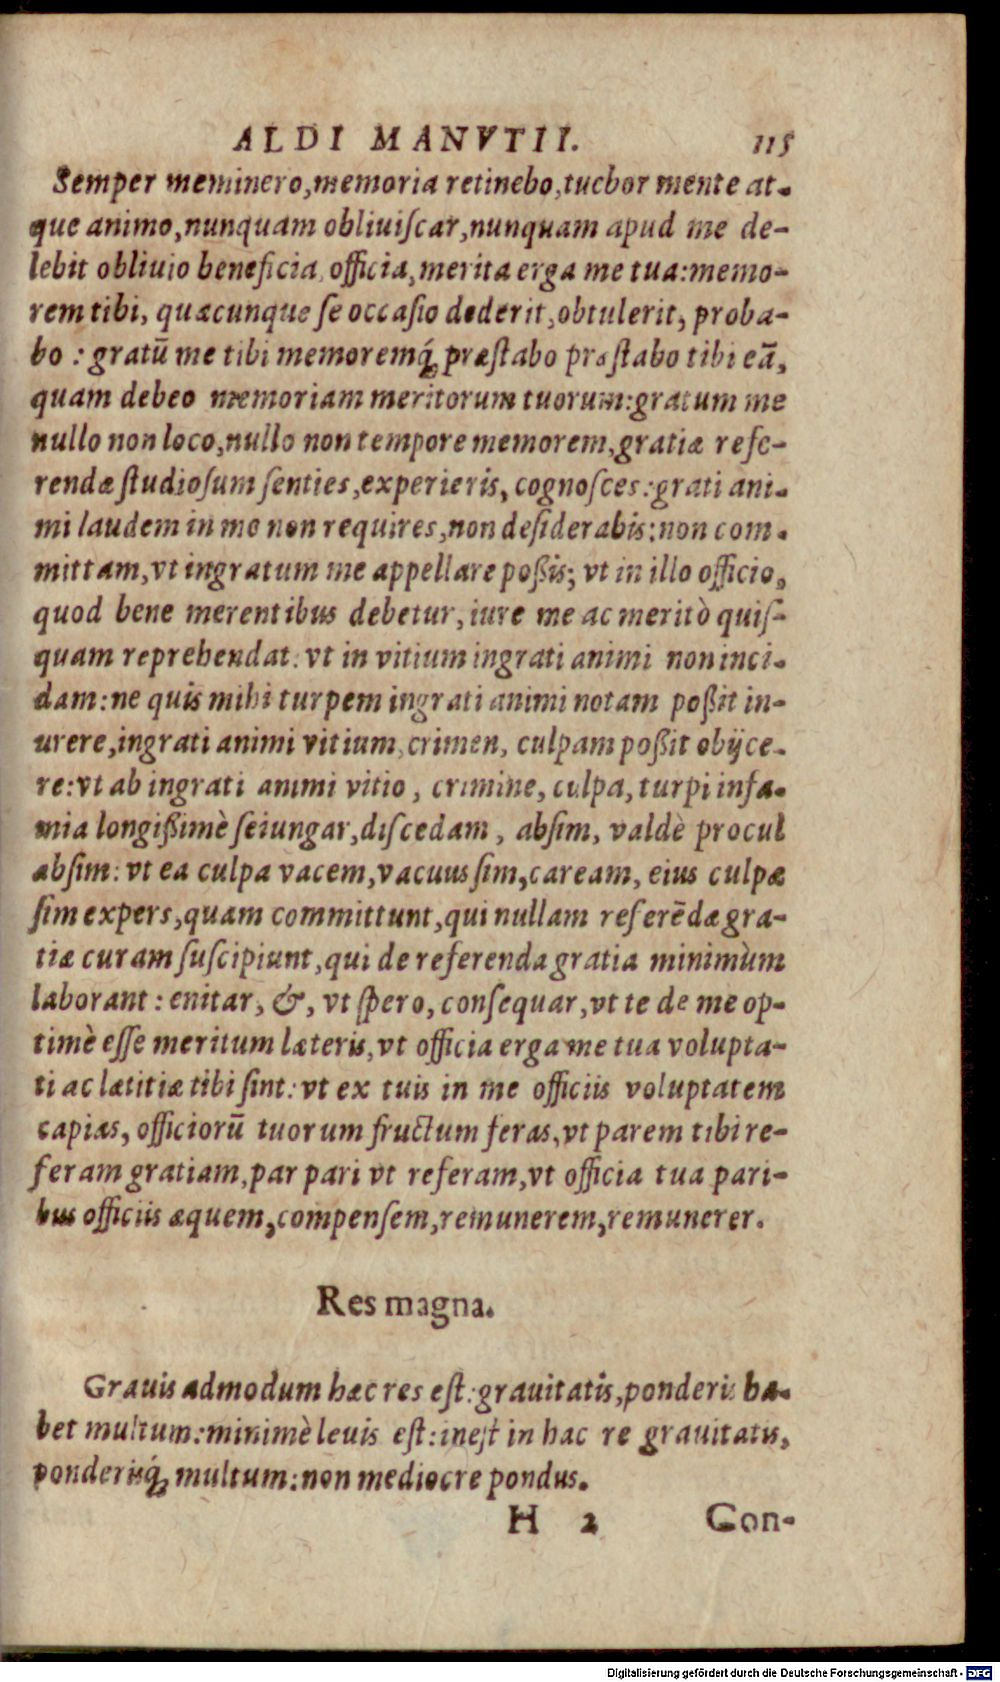 ALDI MANVTII. 115
Semper meminero, memoria retinebo, tuebor mente at-
que animo, nunquam obliuiſcar, nunquam apud me de-
lebit obliuio beneficia, officia, merita erga me tua: memo-
rem tibi, quæcunque ſe occaſio dederit, obtulerit, proba-
bo: gratū me tibi memoremq́; præſtabo præſtabo tibi eā,
quam debeo memoriam meritorum tuorum: gratum me
nullo non loco, nullo non tempore memorem, gratiæ refe-
rendæ ſtudioſum ſenties, experieris, cognoſces: grati ani-
mi laudem in me non requires, non deſiderabis: non com-
mittam, vt ingratum me appellare poßis; vt in illo officio,
quod bene merentibus debetur, iure me ac meritò quiſ-
quam reprehendat: vt in vitium ingrati animi non inci-
dam: ne quis mihi turpem ingrati animi notam poßit in-
urere, ingrati animi vitium, crimen, culpam poßit obijce-
re: vt ab ingrati animi vitio, crimine, culpa, turpi infa-
mia longißimè ſeiungar, diſcedam, abſim, valdè procul
abſim: vt ea culpa vacem, vacuus ſim, caream, eius culpæ
ſim expers, quam committunt, qui nullam referēdæ gra-
tiæ curam ſuſcipiunt, qui de referenda gratia minimùm
laborant: enitar, &, vt ſpero, conſequar, vt te de me op-
timè eſſe meritum læteris, vt officia erga me tua volupta-
ti ac lætitiæ tibi ſint: vt ex tuis in me officiis voluptatem
capias, officiorū tuorum fructum feras, vt parem tibi re-
feram gratiam, par pari vt referam, vt officia tua pari-
bus officiis æquem, compenſem, remunerem, remunerer.
Res magna.
Grauis admodum hæc res eſt: grauitatis, ponderis ha-
bet multum: minimè leuis eſt: ineſt in hac re grauitatis,
ponderisq́; multum: non mediocre pondus.
H 2 Con-
Digitalisierung gefördert durch die Deutsche Forschungsgemeinschaft - DFG